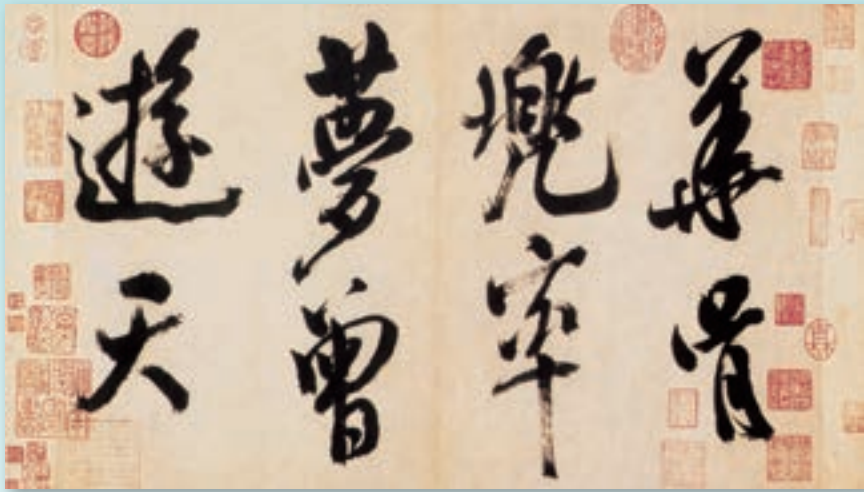 華胥
兜率
夢曾
遊天